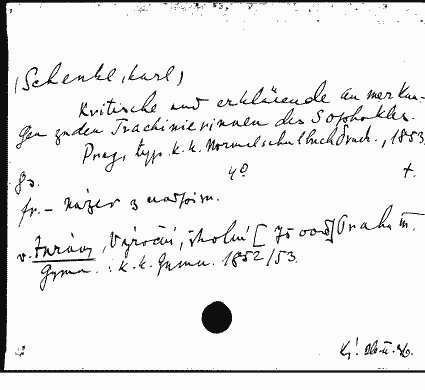 (Schenkl, Karl)
Kritische und erklärende Anmerkun-
gen zu den Trachinierinnen des Sophokles.
Prag, typ. k. k. Normalschulbuchdruck., 1853.
8s. 4° t.
fr. - Název z nadpisu.
v. Zprávy, Výroční, školní [ Praha III.
Gymn. : k. k. Gymn. 1852/53.